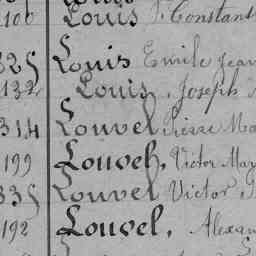 100 Louis F. Constant
325 Louis Emile Jean
132 Louis, Joseph
314 Louvel Pierre Ma
199 Louvel, Victor Mar
335 Louvel Victor
192 Louvel, Alexan